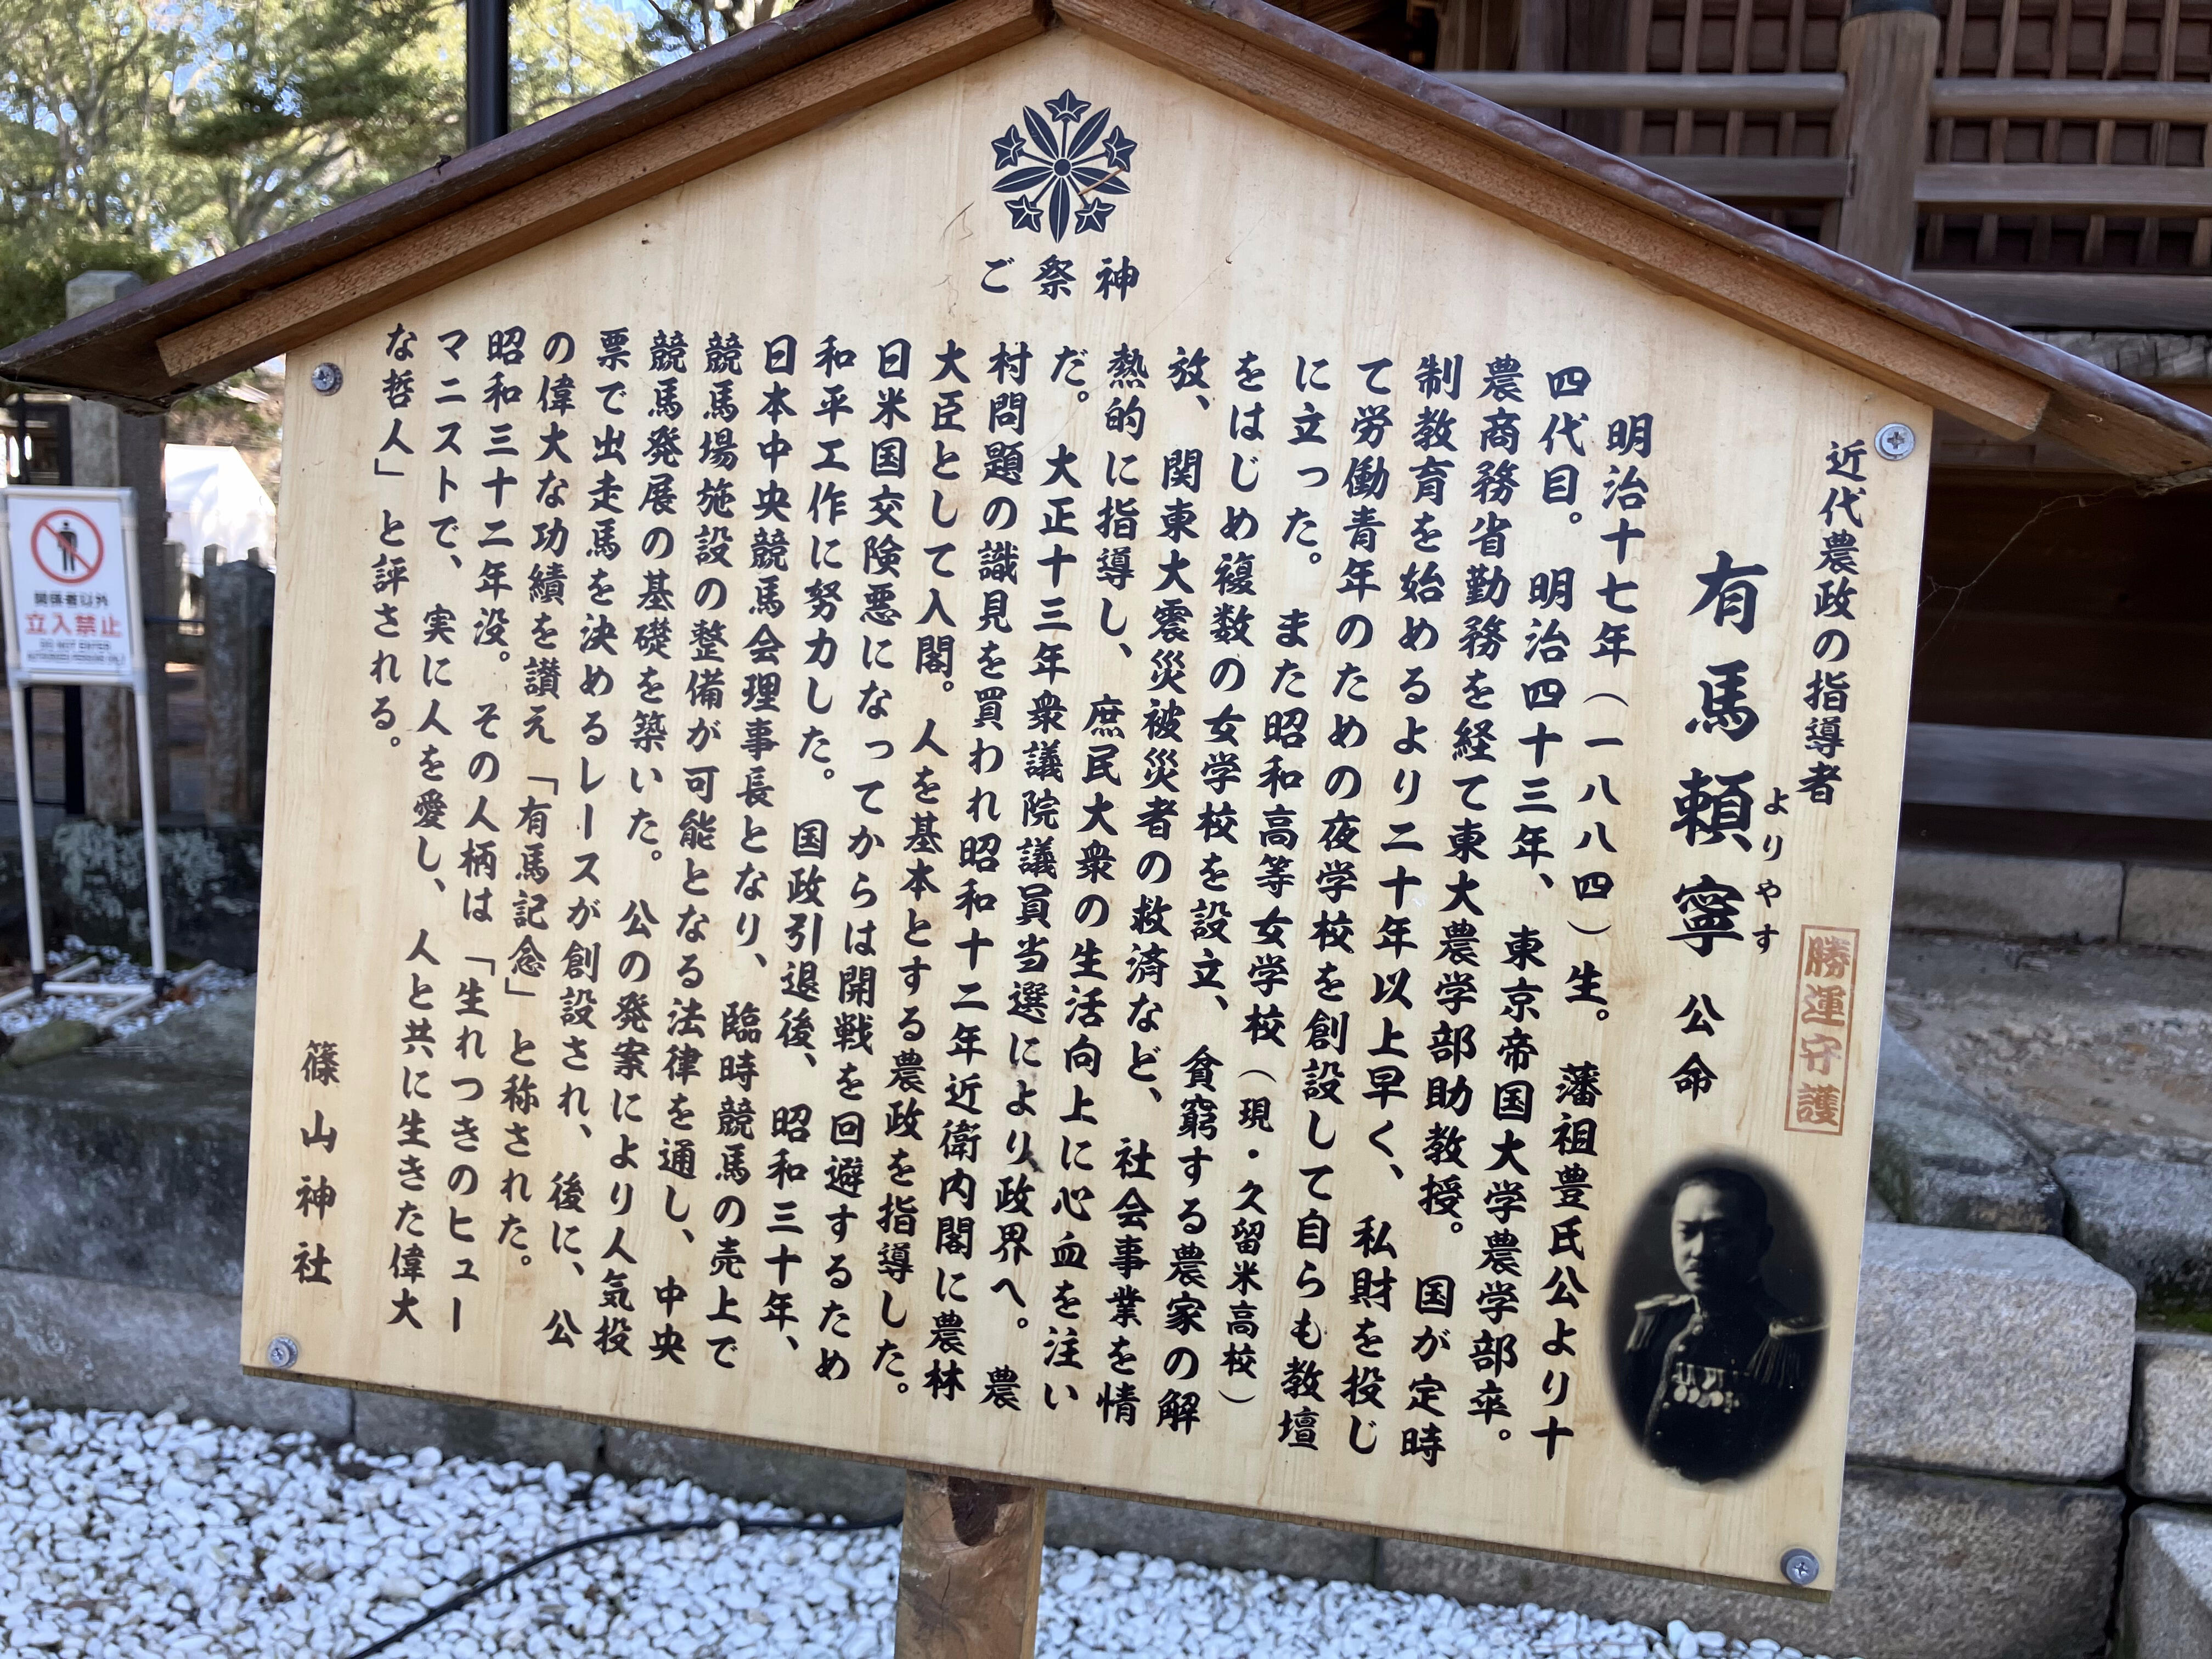 ご祭神
近代農政の指導者
勝運守護
有馬頼寧公命
よりやす
明治十七年（一八八四）生。藩祖豊氏公より十
四代目。明治四十三年、東京帝国大学農学部卒。
農商務省勤務を経て東大農学部助教授。国が定時
制教育を始めるより二十年以上早く、私財を投じ
て労働青年のための夜学校を創設して自らも教壇
に立った。また昭和高等女学校（現・久留米高校）
をはじめ複数の女学校を設立、貧窮する農家の解
放、関東大震災被災者の救済など、社会事業を情
熱的に指導し、庶民大衆の生活向上に心血を注い
だ。大正十三年衆議院議員当選により政界へ。農
村問題の識見を買われ昭和十二年近衛内閣に農林
大臣として入閣。人を基本とする農政を指導した。
日米国交険悪になってからは開戦を回避するため
和平工作に努力した。国政引退後、昭和三十年、
日本中央競馬会理事長となり、臨時競馬の売上で
競馬場施設の整備が可能となる法律を通し、中央
競馬発展の基礎を築いた。公の発案により人気投
票で出走馬を決めるレースが創設され、後に、公
の偉大な功績を讃え「有馬記念」と称された。
昭和三十二年没。その人柄は「生れつきのヒュー
マニストで、実に人を愛し、人と共に生きた偉大
な哲人」と評される。
篠山神社
関係者以外
立入禁止
DO NOT ENTER